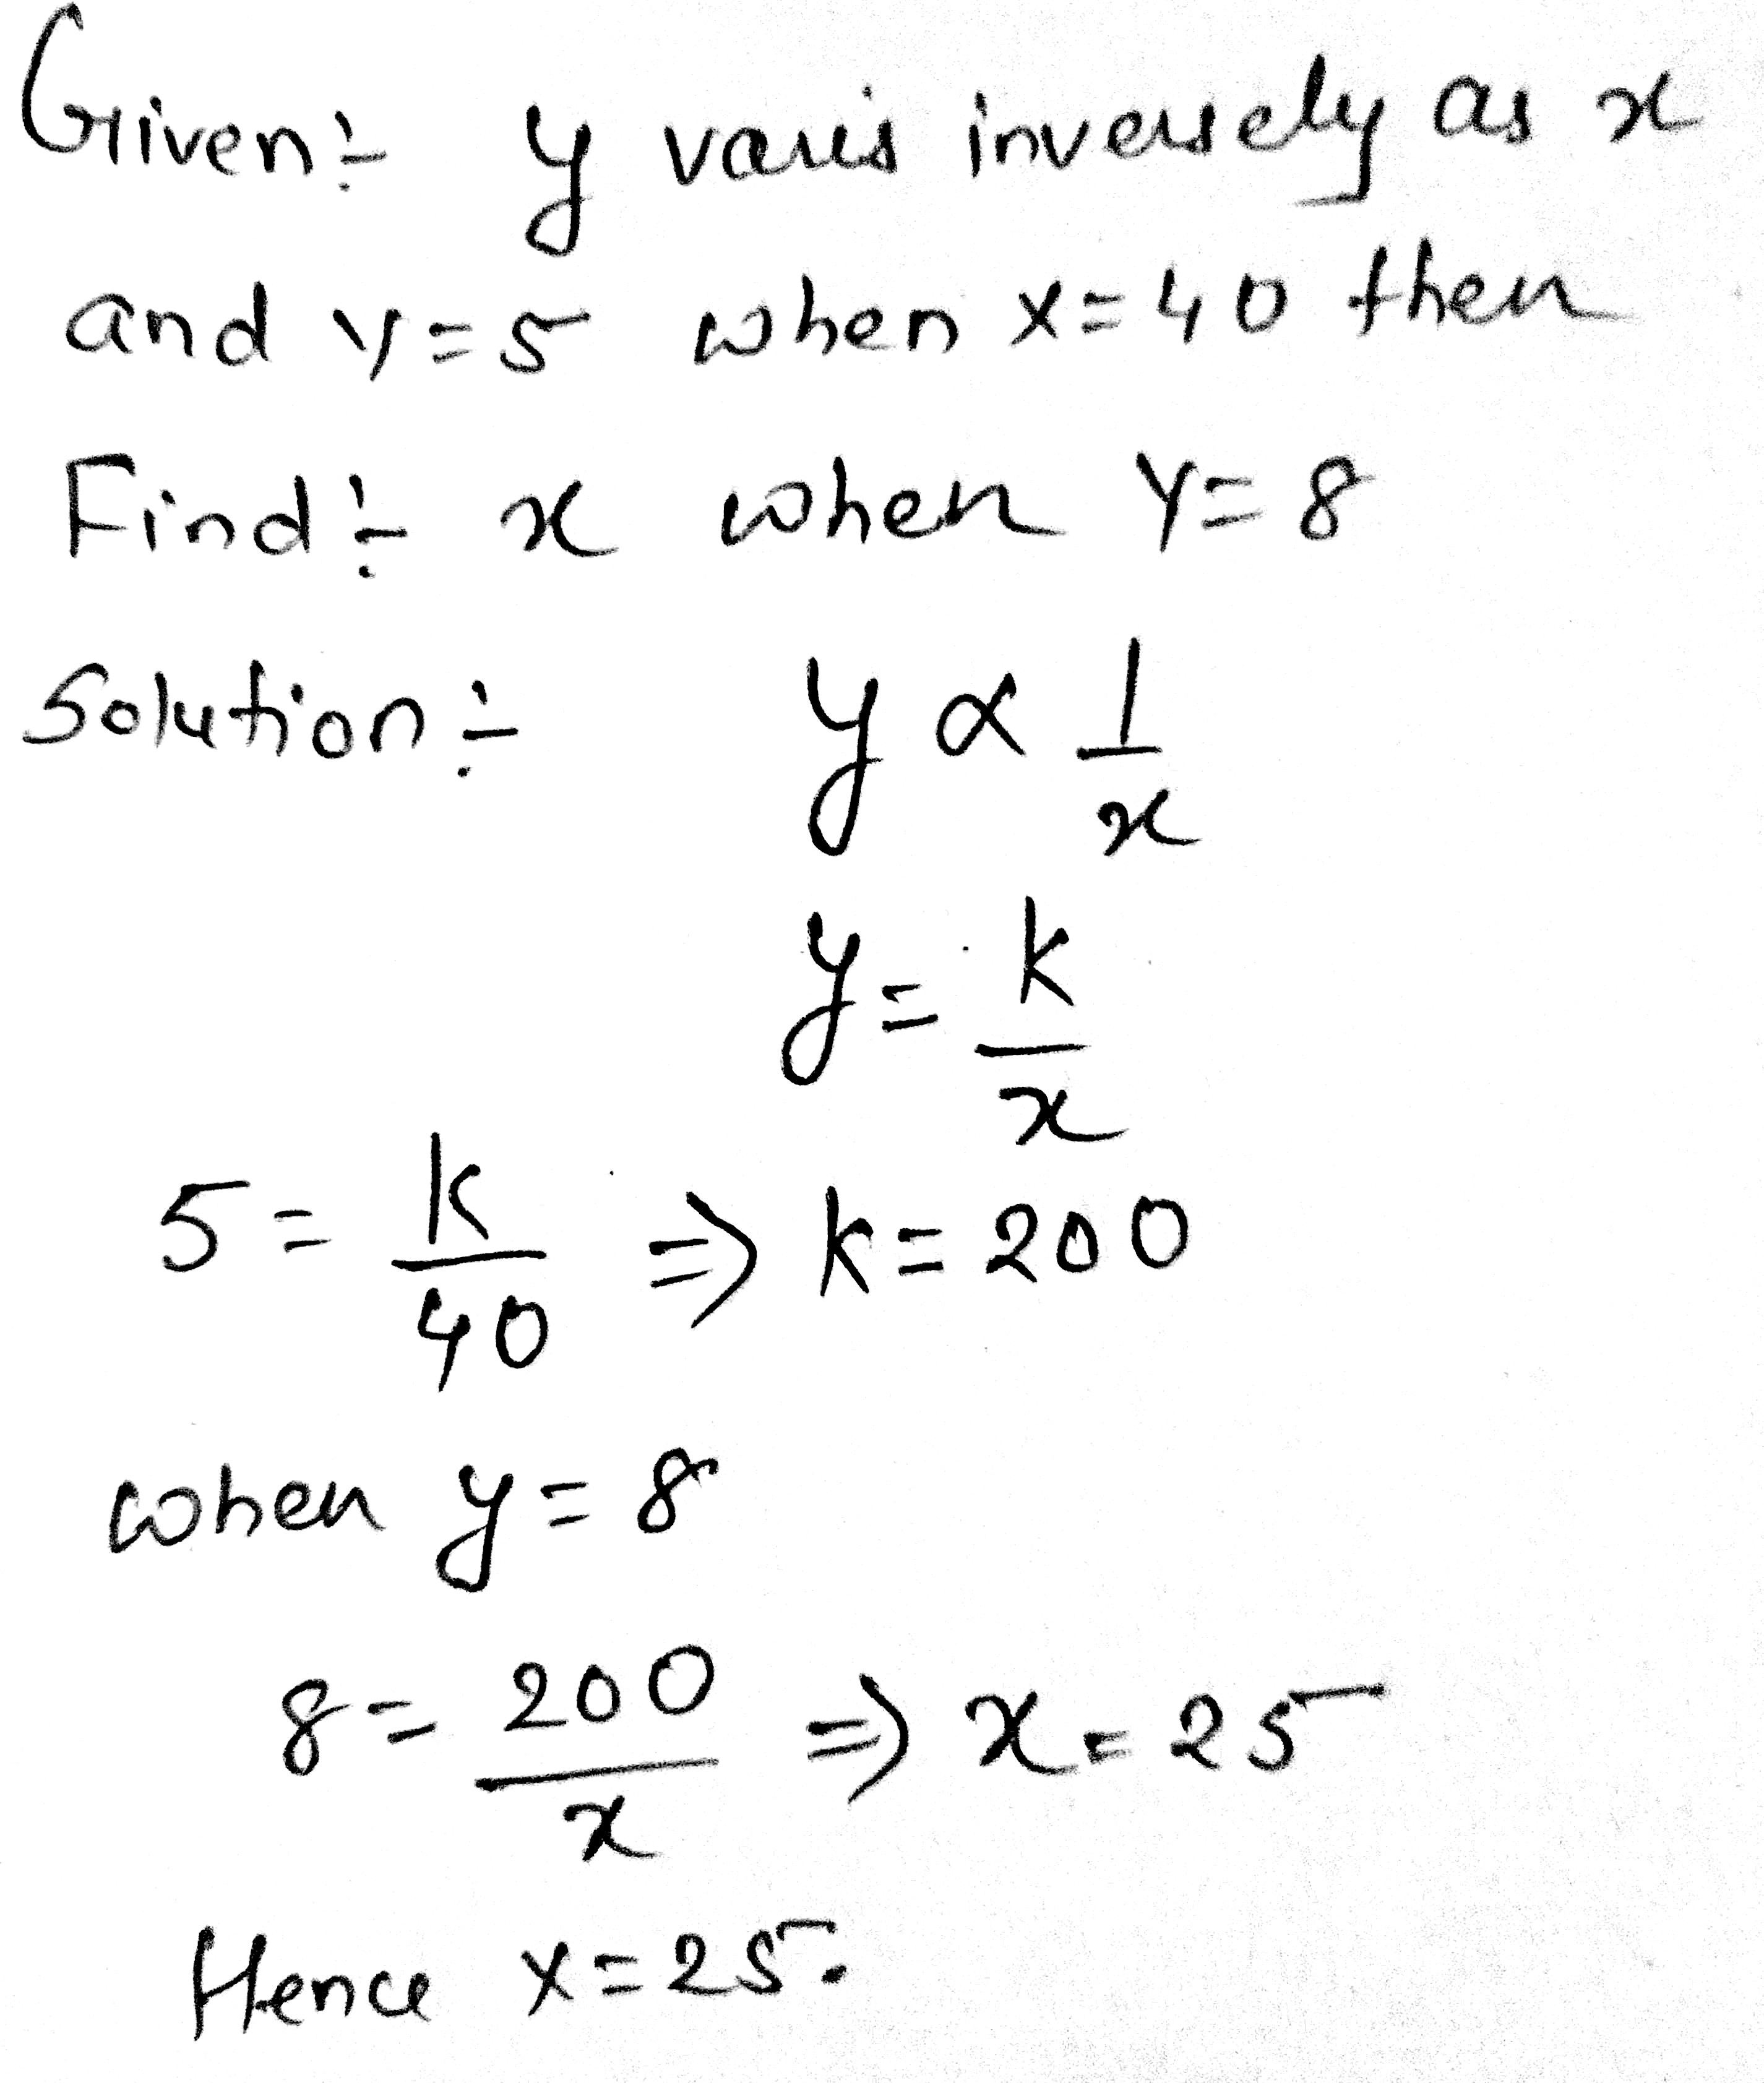 Given:- y varies inversely as x
and y=5 when x=40 then
Find:- x when y=8
Solution:- y ∝ 1/x
y = k/x
5 = k/40 ⇒ k=200
when y=8
8 = 200/x ⇒ x=25
Hence x=25.